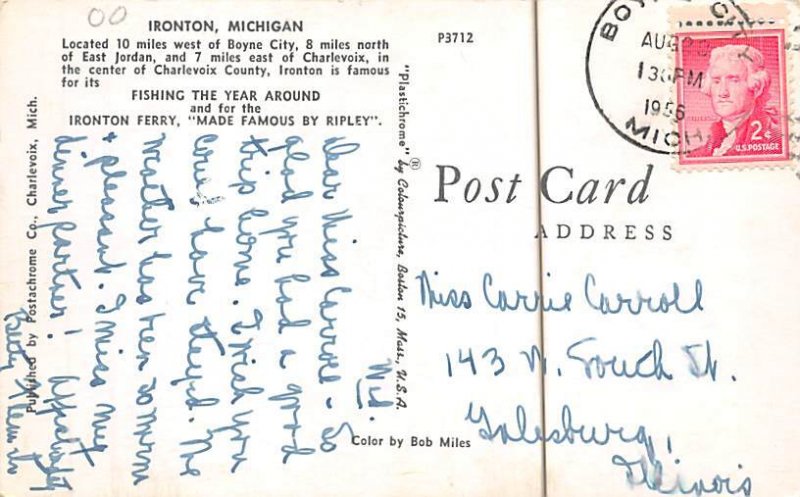 00
IRONTON, MICHIGAN
Located 10 miles west of Boyne City, 8 miles north
of East Jordan, and 7 miles east of Charlevoix, in
the center of Charlevoix County, Ironton is famous
for its
FISHING THE YEAR AROUND
and for the
IRONTON FERRY, "MADE FAMOUS BY RIPLEY".
Published by Postachrome Co., Charlevoix, Mich.
Wed.
Dear Miss Carroll - So
glad you had a good
trip home. I wish you
could have stayed. The
weather has been so warm
& pleasant. I miss my
dinner partner!
Betty
"Plastichrome" ® by Colourpicture, Boston 15, Mass., U.S.A.
Color by Bob Miles
P3712
Post Card
ADDRESS
BOYNE CITY
AUG
1 30 PM
1956
MICH.
2¢
U.S. POSTAGE
Miss Carrie Carroll
143 N. South St.
Galesburg,
Illinois